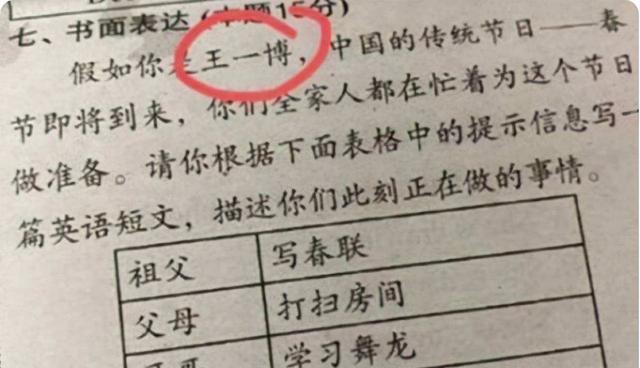 七、书面表达(本题15分)
假如你是王一博,中国的传统节日——春
节即将到来,你们全家人都在忙着为这个节日
做准备。请你根据下面表格中的提示信息写一
篇英语短文,描述你们此刻正在做的事情。
祖父 写春联
父母 打扫房间
学习舞龙